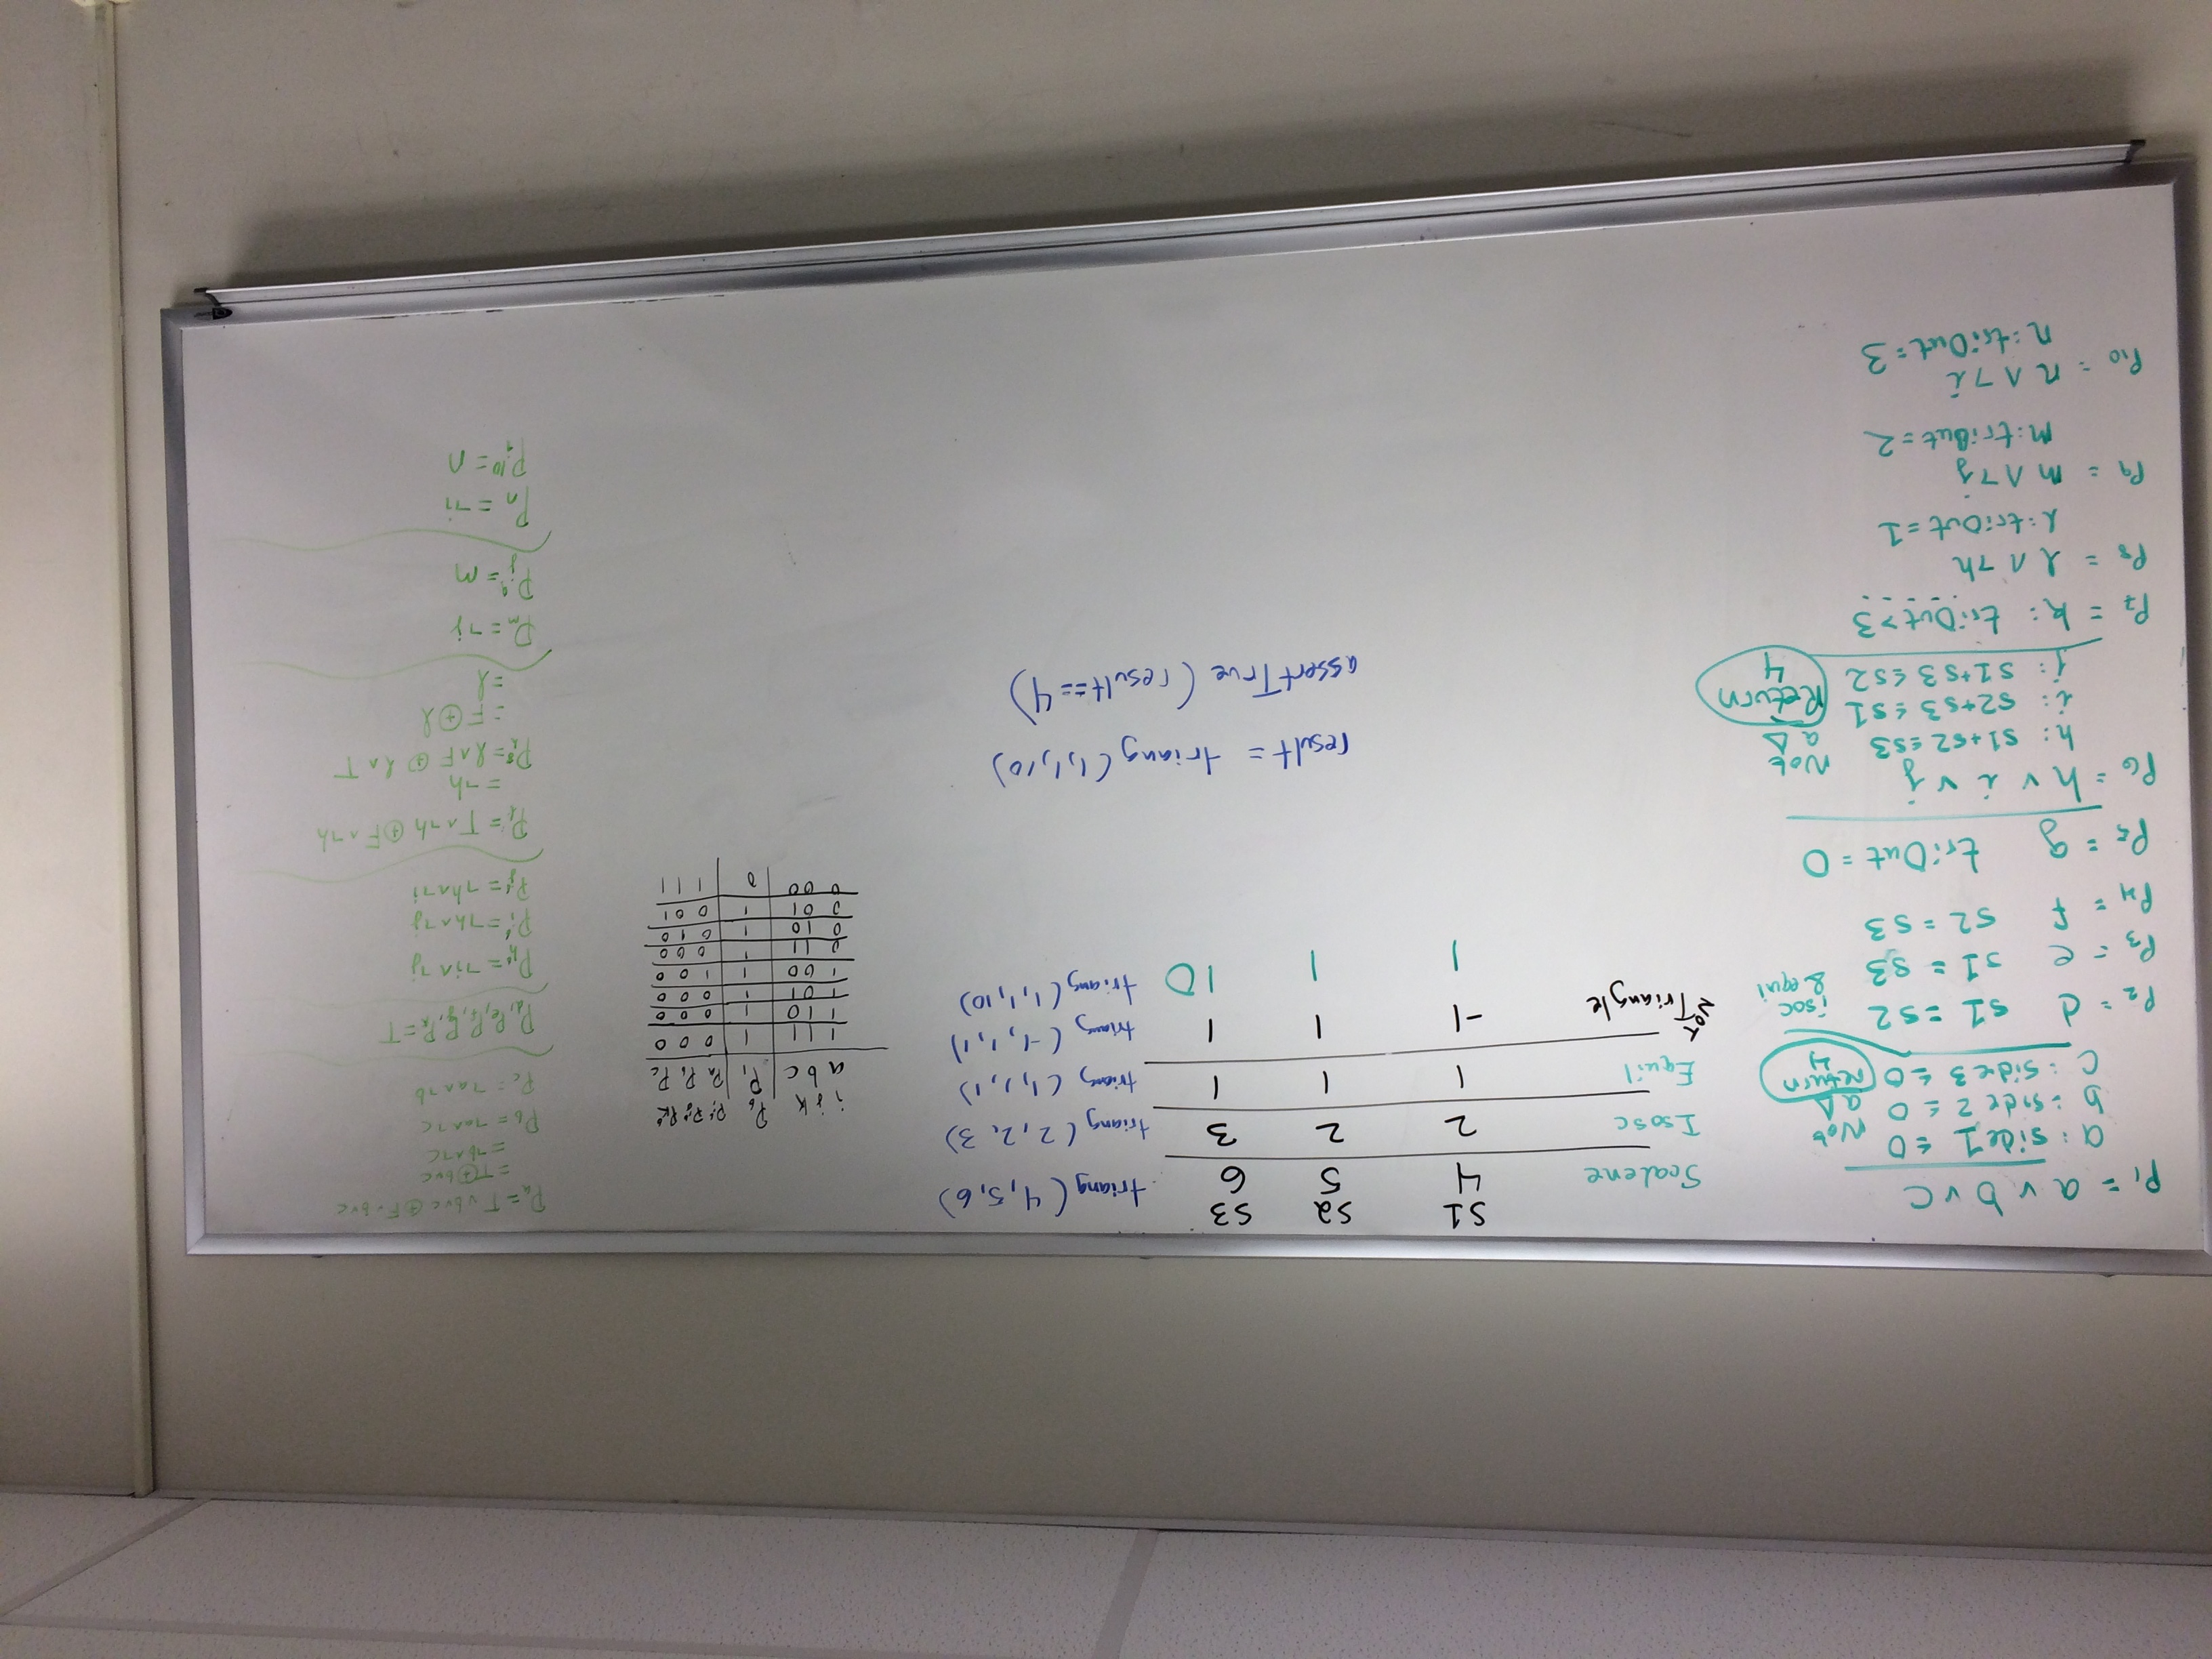 P1 = a ∨ b ∨ c
a: side1 ≤ 0
b: side2 ≤ 0
c: side3 ≤ 0
Not
a Δ
return
4
P2 = d s1 = s2
P3 = e s1 = s3
P4 = f s2 = s3
isoc
& equi
P5 = g triOut = 0
P6 = h ∨ i ∨ j
h: s1+s2≤s3
i: s2+s3≤s1
j: s1+s3≤s2
Not
a Δ
Return
4
P7 = k: triOut>3
P8 = l ∧ ¬h
l: triOut=1
P9 = m ∧ ¬j
m: triOut=2
P10 = n ∧ ¬i
n: triOut=3
S1 S2 S3
Scalene 4 5 6 triang(4,5,6)
Isosc 2 2 3 triang(2,2,3)
Equil 1 1 1 triang(1,1,1)
Not
Triangle -1 1 1 triang(-1,1,1)
1 1 10 triang(1,1,10)
result = triang(1,1,10)
assertTrue(result==4)
i j k P6 Pi Pj Pk
a b c P1 Pa Pb Pc
1 1 1 1 0 0 0
1 1 0 1 0 0 0
1 0 1 1 0 0 0
1 0 0 1 1 0 0
0 1 1 1 0 0 0
0 1 0 1 0 1 0
0 0 1 1 0 0 1
0 0 0 0 1 1 1
Pa = T ∨ b∨c ⊕ F ∨ b∨c
= T ⊕ b∨c
= ¬b∧¬c
Pb = ¬a∧¬c
Pc = ¬a∧¬b
Pd, Pe, Pf, Pg, Pk = T
Ph = ¬i∧¬j
Pi = ¬h∧¬j
Pj = ¬h∧¬i
Pl = T∧¬h ⊕ F∧¬h
= ¬h
P8h = l∧F ⊕ l∧T
= F ⊕ l
= l
Pm = ¬j
P9j = m
Pn = ¬i
P10 = n